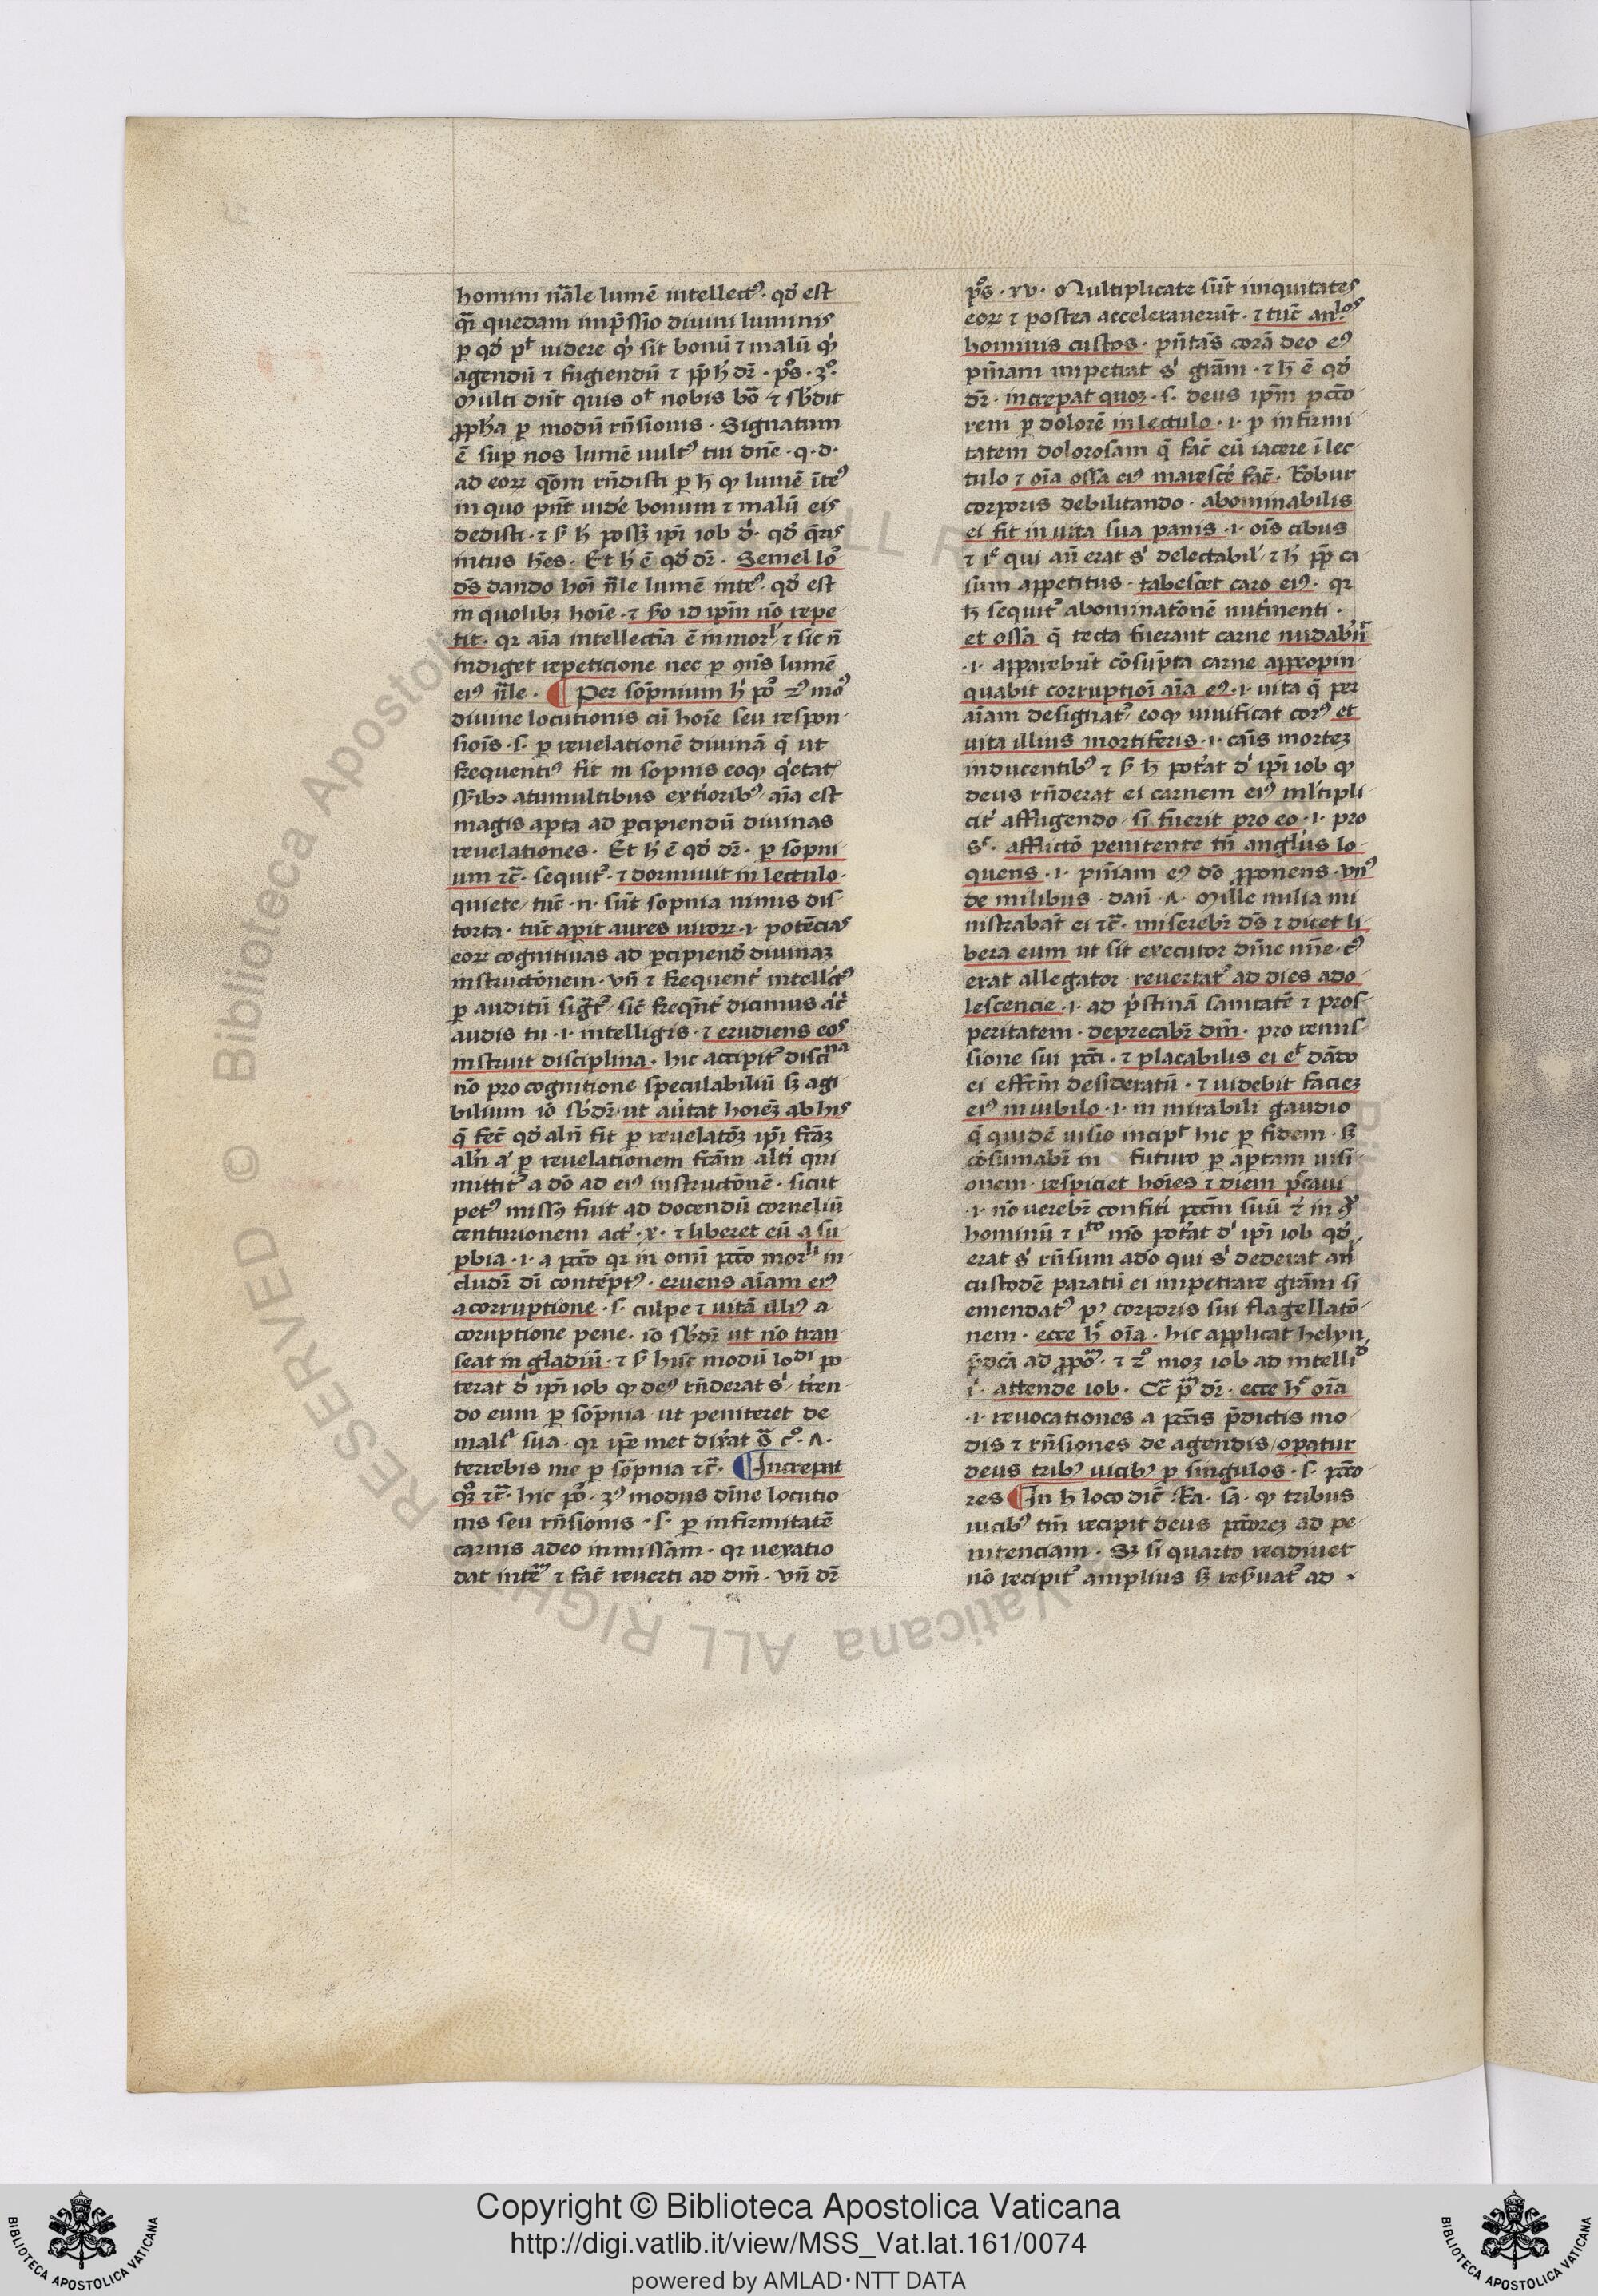 homini nãle lumẽ intellectꝰ · qđ est
q̃i quedam imp̃ssio diuini luminis
ꝑ qđ pt uidere qͥ sit bonũ ⁊ malũ qͥ
agendũ ⁊ fugiendũ ⁊ ꝓpħ dr̃ · pͦs · 3ͦ ·
Multi dn̄t quis oſt nobis bõ ⁊ sb̾dit
ꝓpħa ꝑ modũ rñsionis · Signatum
ẽ suꝑ nos lumẽ uultꝰ tui dñe · q · d ·
ad eoꝝ qõm rñdisti ꝑ ħ ꝙ lumẽ ĩteꝰ
in quo pñt uid̾e bonum ⁊ malũ eis
dedisti · ⁊ ẜ ħ possꝫ ip̃i iob đ · qđ
nitus ħes · Et ħ ẽ qđ dr̃ · Semel loͬ
dẽs dando hoĩ ñle lumẽ inteꝰ qđ est
in quolibꝫ hoĩe · ⁊ ẜo id ip̃m nõ repe
tit · qr aĩa intellectĩa ẽ inmorˡ ⁊ sic ñ
indiget repeticione nec ꝑ ꝯñs lumẽ
eiꝰ ñle · ¶ Per sop̃nium ħ poͬ 2ꝰ moͬ
diuine locutionis cũ hoĩe seu respon
siõis · s · ꝑ reuelationẽ diuinã q̃ ut
frequentiꝰ fit in sopnis eoꝙ qͥetatꝭ
sẽsibꝫ atumultibus extioribꝰ / aĩa est
magis apta ad ꝑcipiendũ diuinas
reuelationes · Et ħ ẽ qđ dr̃ · ꝑ sopni
um ⁊c̃ · sequitͬ · ⁊ dormiuit in lectulo ·
quiete / tũc · n · sũt sopnia minus dis
torta · tũc aꝑit aures uiroꝝ · i · potẽcias
eoꝝ cognitiuas ad ꝑcipiendͥ diuinaꝫ
instructõnem · vñ ⁊ frequent̾ intell̾ctꝰ
ꝑ auditũ siḡtͬ / sic̃ freqñt̾ dicimus
audis tu · i · intelligis · ⁊ erudiens eos
instruit disciplina · hic accipitͬ disciⁿᵃ
nõ pro cognitione speculabiliũ sꝫ agi
bilium iõ sb̾dr̃ ut au̾tat hoĩeꝫ ab his
q̃ fec̃ qđ alñ fit ꝑ reuelatõꝫ ip̃i fc̃ãꝫ
alñ aͬ ꝑ reuelationem fc̃ãm alt̾i qui
mittitͬ a dõ ad eiꝰ instructõnẽ · sicut
petͬꝰ missꝰ fuit ad docendũ corneliũ
centurionem actͬ · x · ⁊ liberet eũ a su
ꝑbia · i · a pctõ qr in omĩ pctõ morˡⁱ in
cludr̃ di contẽptꝰ · eruens aĩam eiꝰ
a corruptione · s · culpe ⁊ uitã illiꝰ a
coruptione pene · iõ sb̾dr̃ ut nõ tran
seat in gladiũ · ⁊ ẜ hũc modũ loᵈⁱ po
terat đ ip̃i iob ꝙ deꝰ rñderat sͥ / t̾ren
do eum ꝑ sop̃nia ut peniteret de
malĩᵃ sua · qr ip̃e met dix̾at s̃ cͦ · ʌ ·
terrebis me ꝑ sop̃nia ⁊c̃ · ¶ Increpat
ꝙꝫ ⁊c̃ · hic poͬ · 3ꝰ modus diuĩe locutio
nis seu rñsionis · s · ꝑ infirmitatẽ
carnis adeo inmissam · qr uexatio
dat intẽᵐ ⁊ fac̃ reuerti ad dñm · vñ dr̃
pͦs · xv · Multiplicate sũt iniquitates
eoꝝ ⁊ postea accelerauerũt · ⁊ tũc anˡos
hominis custos · pñtãs corã deo eiꝰ
pñiam impetrat sͥ grãm · ⁊ ħ ẽ qđ
dr̃ · increpat quoꝫ · s · deus ip̃m pctõ
rem ꝑ dolorẽ in lectulo · i · ꝑ infirmi
tatem dolorosam q̃ fac̃ eũ iacere ĩ lec
tulo ⁊ oĩa ossa eiꝰ marescͥe fac̃ · Robur
corporis debilitando · abominabilis
ei fit in uita sua panis · i · oĩs cibus
⁊ iͤ qui añ erat sͥ delectabilꝭ ⁊ ħ ꝓp ca
sum appetitus · tabescet caro eiꝰ · qr
ħ sequitͬ abominatõnẽ nut̾menti ·
et ossa q̃ tecta fuerant carne nudabñͬ
· i · apparebũt cõsũpta carne appropin
quabit corruptioĩ aĩa eꝰ · i · uita q̃ per
aĩam designatͬ / eoꝙ uiuificat corꝰ et
uita illius mortiferis · i · cãis morteꝫ
inducentibꝰ ⁊ ẜ ħ pot̾at đ ip̃i iob ꝙ
deus rñderat ei carnem eiꝰ ml̾tipli
cit̾ affligendo / si fuerit pro eo · i · pro
sͤ · afflictõ penitente tñ angl̾us lo
quens · i · pñiam eꝰ dõ ꝓponens · vnꝰ
de milibus · dañ · ʌ · Mille milia mi
nistrabãt ei ⁊c̃ · miserebr̃ dẽs ⁊ dicet li
bera eum ut sit executor diuĩe mĩe · cꝰ
erat allegator · reuertatͬ ad dies ado
lescencie · i · ad pͥstinã sanitatẽ ⁊ pros
peritatem · deprecabr̃ dñm · pro remis
sione sui pcti · ⁊ placabilis ei eͬt dãdo
ei effc̃m desideratũ · ⁊ uidebit facieꝫ
eiꝰ in iubilo · i · in mirabili gaudio
q̃ quidẽ uisio incipᵗ hic ꝑ fidem · sꝫ
cõsumabr̃ in futuro ꝑ aꝑtam uisi
onem · respiciet hoĩes ⁊ diem pͨcaui
· i · nõ uerebr̃ confit̾i pctm̃ suũ
hominũ ⁊ iᵗᵒ mõ pot̾at đ ip̃i iob qđ
erat sͥ rñsum adeo qui sͥ dederat anˡ
custodẽ paratũ ei impetrare grãm si
emendatͬ pꝰ corporis sui flagellatõ
nem · ecce ħͨ oĩa · hic applicat helyu
p̃dc̃a ad ꝓpoͫ · ⁊ 2ͦ moꝫ iob ad intelliᵈ
iͬ · attende iob · Cͬc̃ pͫ dr̃ · ecce ħͨ oĩa
· i · reuocationes a pctis p̃dictis mo
dis ⁊ rñsiones de agendis / opatur
deus tribꝰ uicibꝰ ꝑ singulos · s · pctõ
res ¶ In ħ loco dic̃ Ra · sa · ꝙ tribus
uicibꝰ tm̃ recipit deus pctõreꝫ ad pe
nitenciam · Sꝫ si quarto recidiuet
nõ recipitͬ amplius sꝫ resͬuatͬ ad ·
Copyright © Biblioteca Apostolica Vaticana
http://digi.vatlib.it/view/MSS_Vat.lat.161/0074
powered by AMLAD·NTT DATA
BIBLIOTECA APOSTOLICA VATICANA
BIBLIOTECA APOSTOLICA VATICANA
© Biblioteca Apostolica Vaticana ALL RIGHTS RESERVED